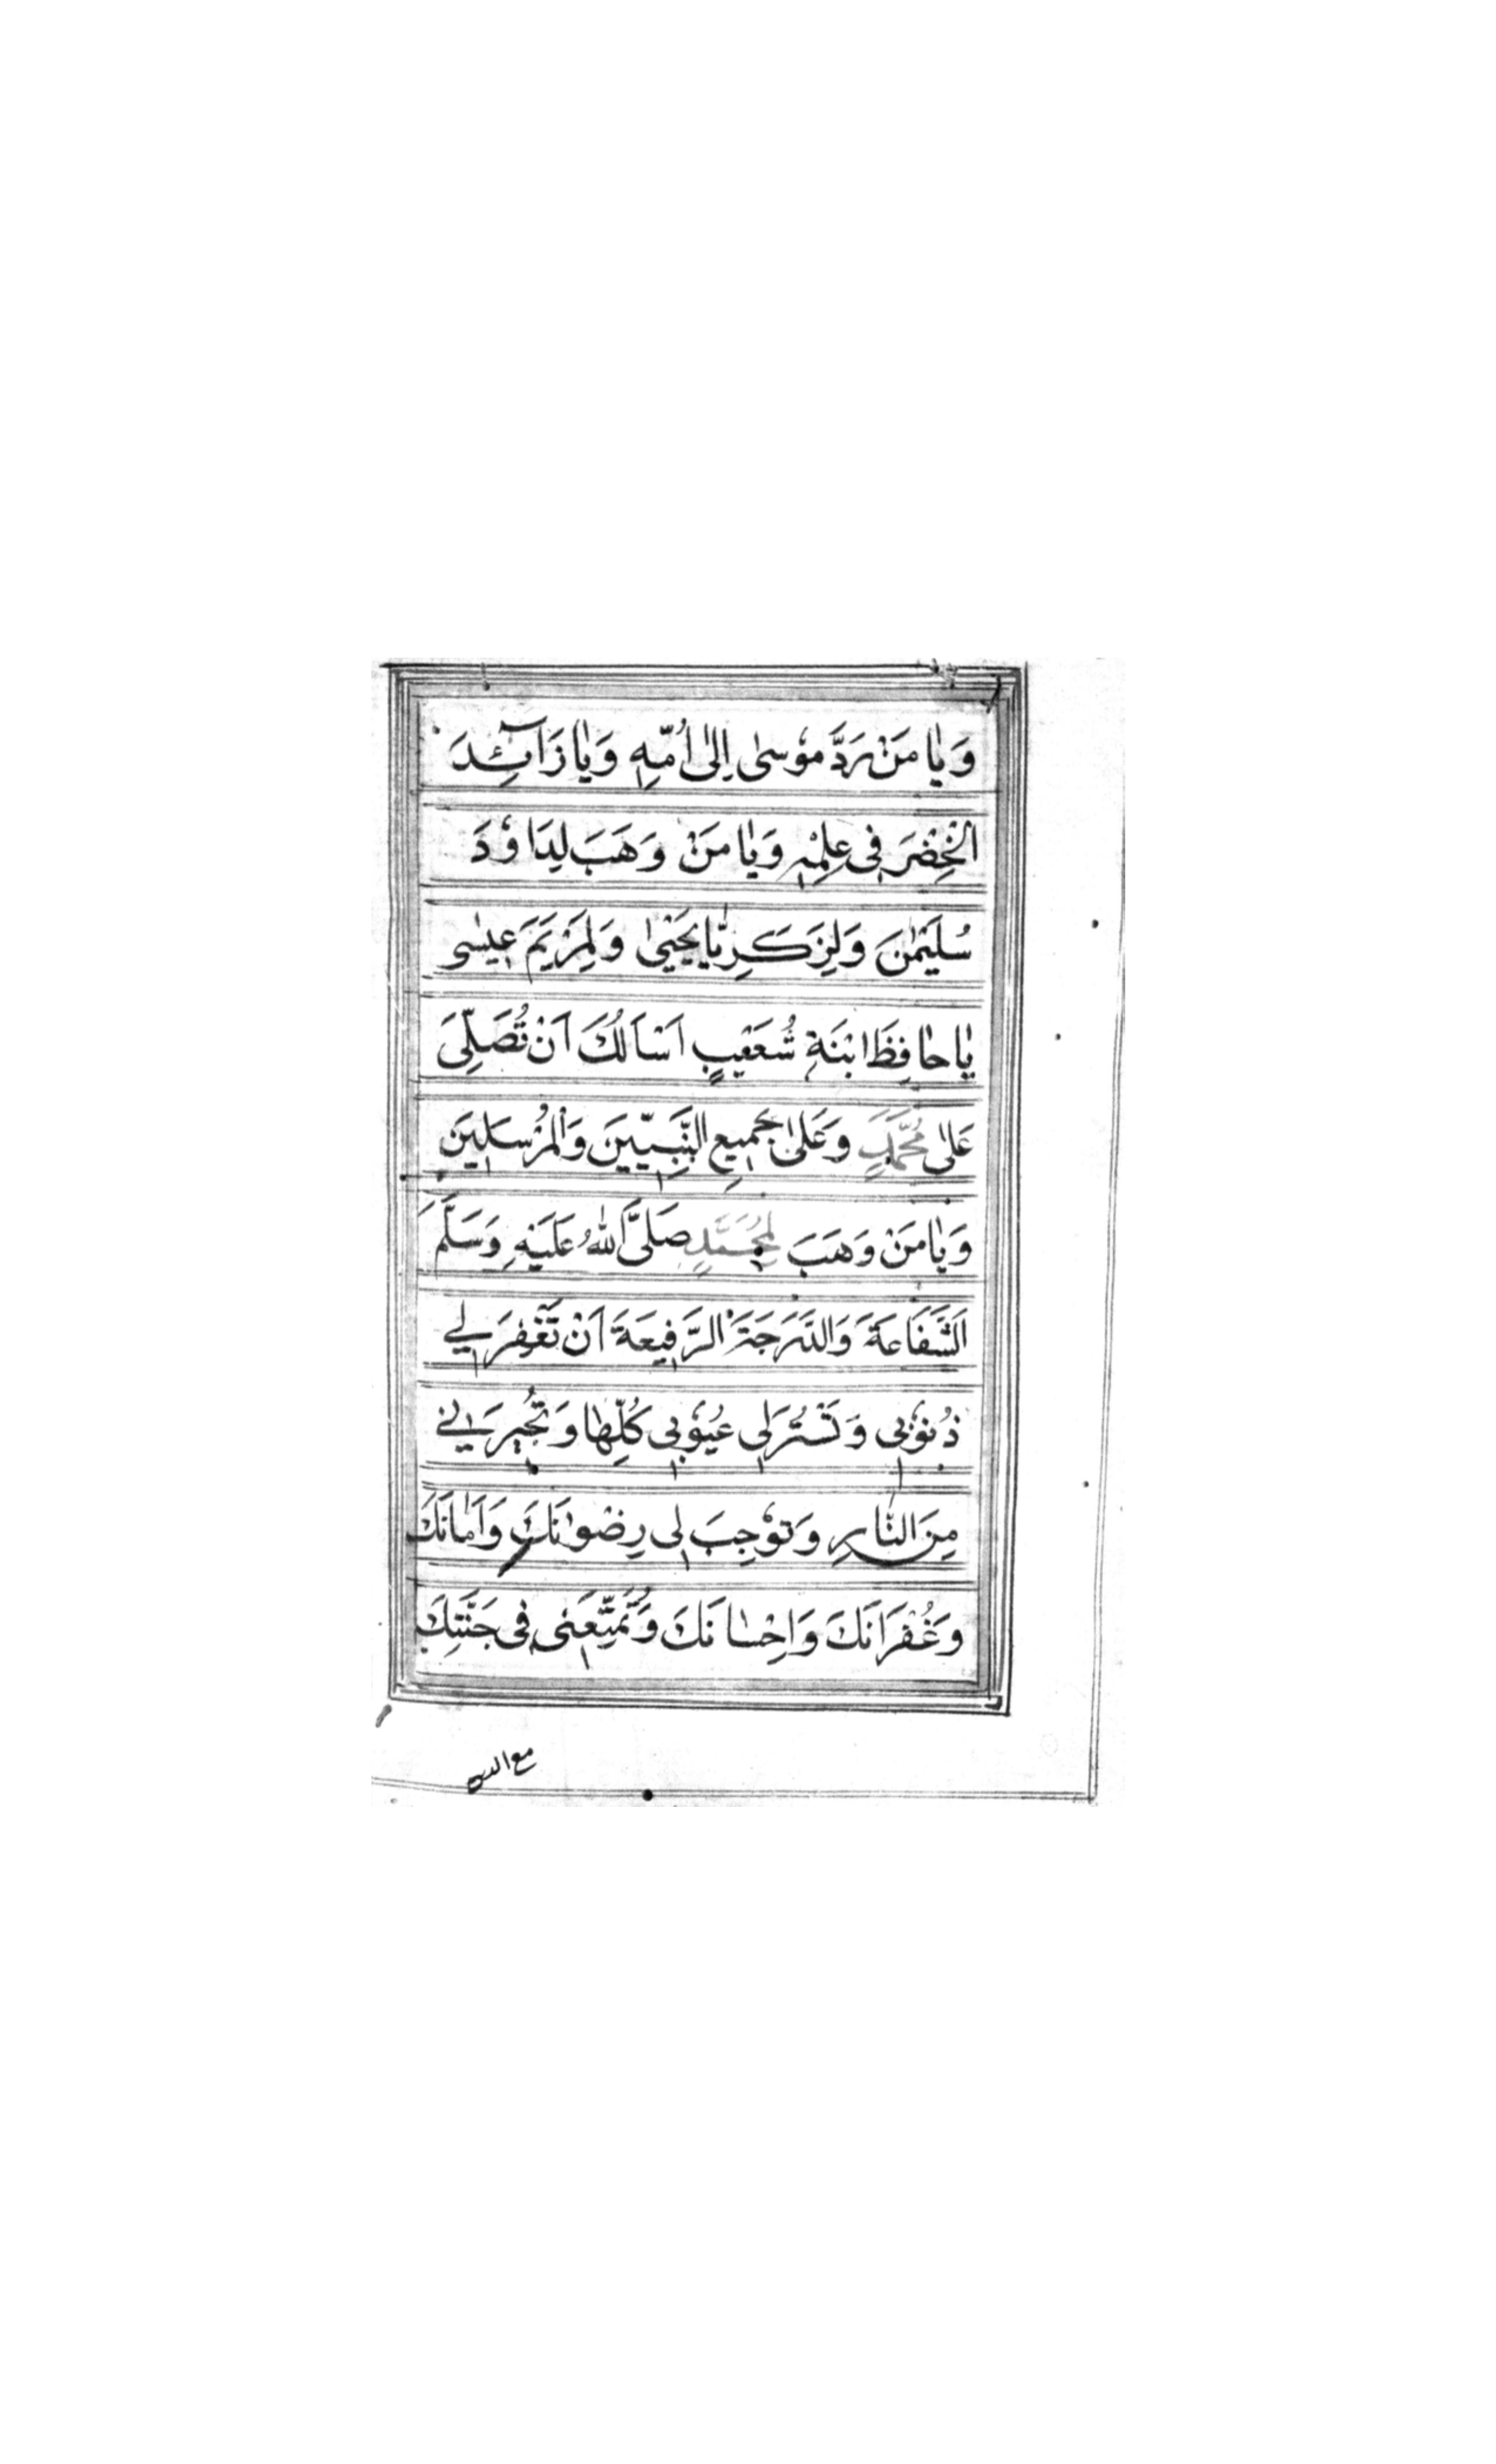 وَيٰا مَنْ رَدَّ مُوْسىٰ اِلىٰ اُمِّهٖ وَيٰا زَآئِدَ
الْخِضْرَ فِى عِلْمِهٖ وَيٰا مَنْ وَهَبَ لِدَاوٗدَ
سُلَيْمٰنَ وَلِزَكَرِيّٰا يَحْيىٰ وَلِمَرْيَمَ عِيسٰى
يٰا حٰافِظَ ابْنَةِ شُعَيْبٍ اَسْاَلُكَ اَنْ تُصَلِّىَ
عَلىٰ مُحَمَّدٍ وَعَلىٰ جَمِيعِ النَّبِيّيِنَ وَالْمُرْسَلِينَ
وَيٰا مَنْ وَهَبَ لِمُحَمَّدٍ صَلَّى اللّٰهُ عَلَيْهِ وَسَلَّمَ
اَلشَّفَاعَةَ وَالدَّرَجَةَ الرَّفِيعَةَ اَنْ تَغْفِرَ لِي
ذُنُوْبِى وَتَسْتُرَ لِى عُيُوْبِى كُلِّهٰا وَتُجِيرَنِي
مِنَ النّٰارِ وَتُوْجِبَ لِى رِضْوٰانَكَ وَاَمٰانَكَ
وَغُفْرَانَكَ وَاِحْسٰانَكَ وَتُمَتِّعَنِى فِى جَنَّتِكَ
مع الذين